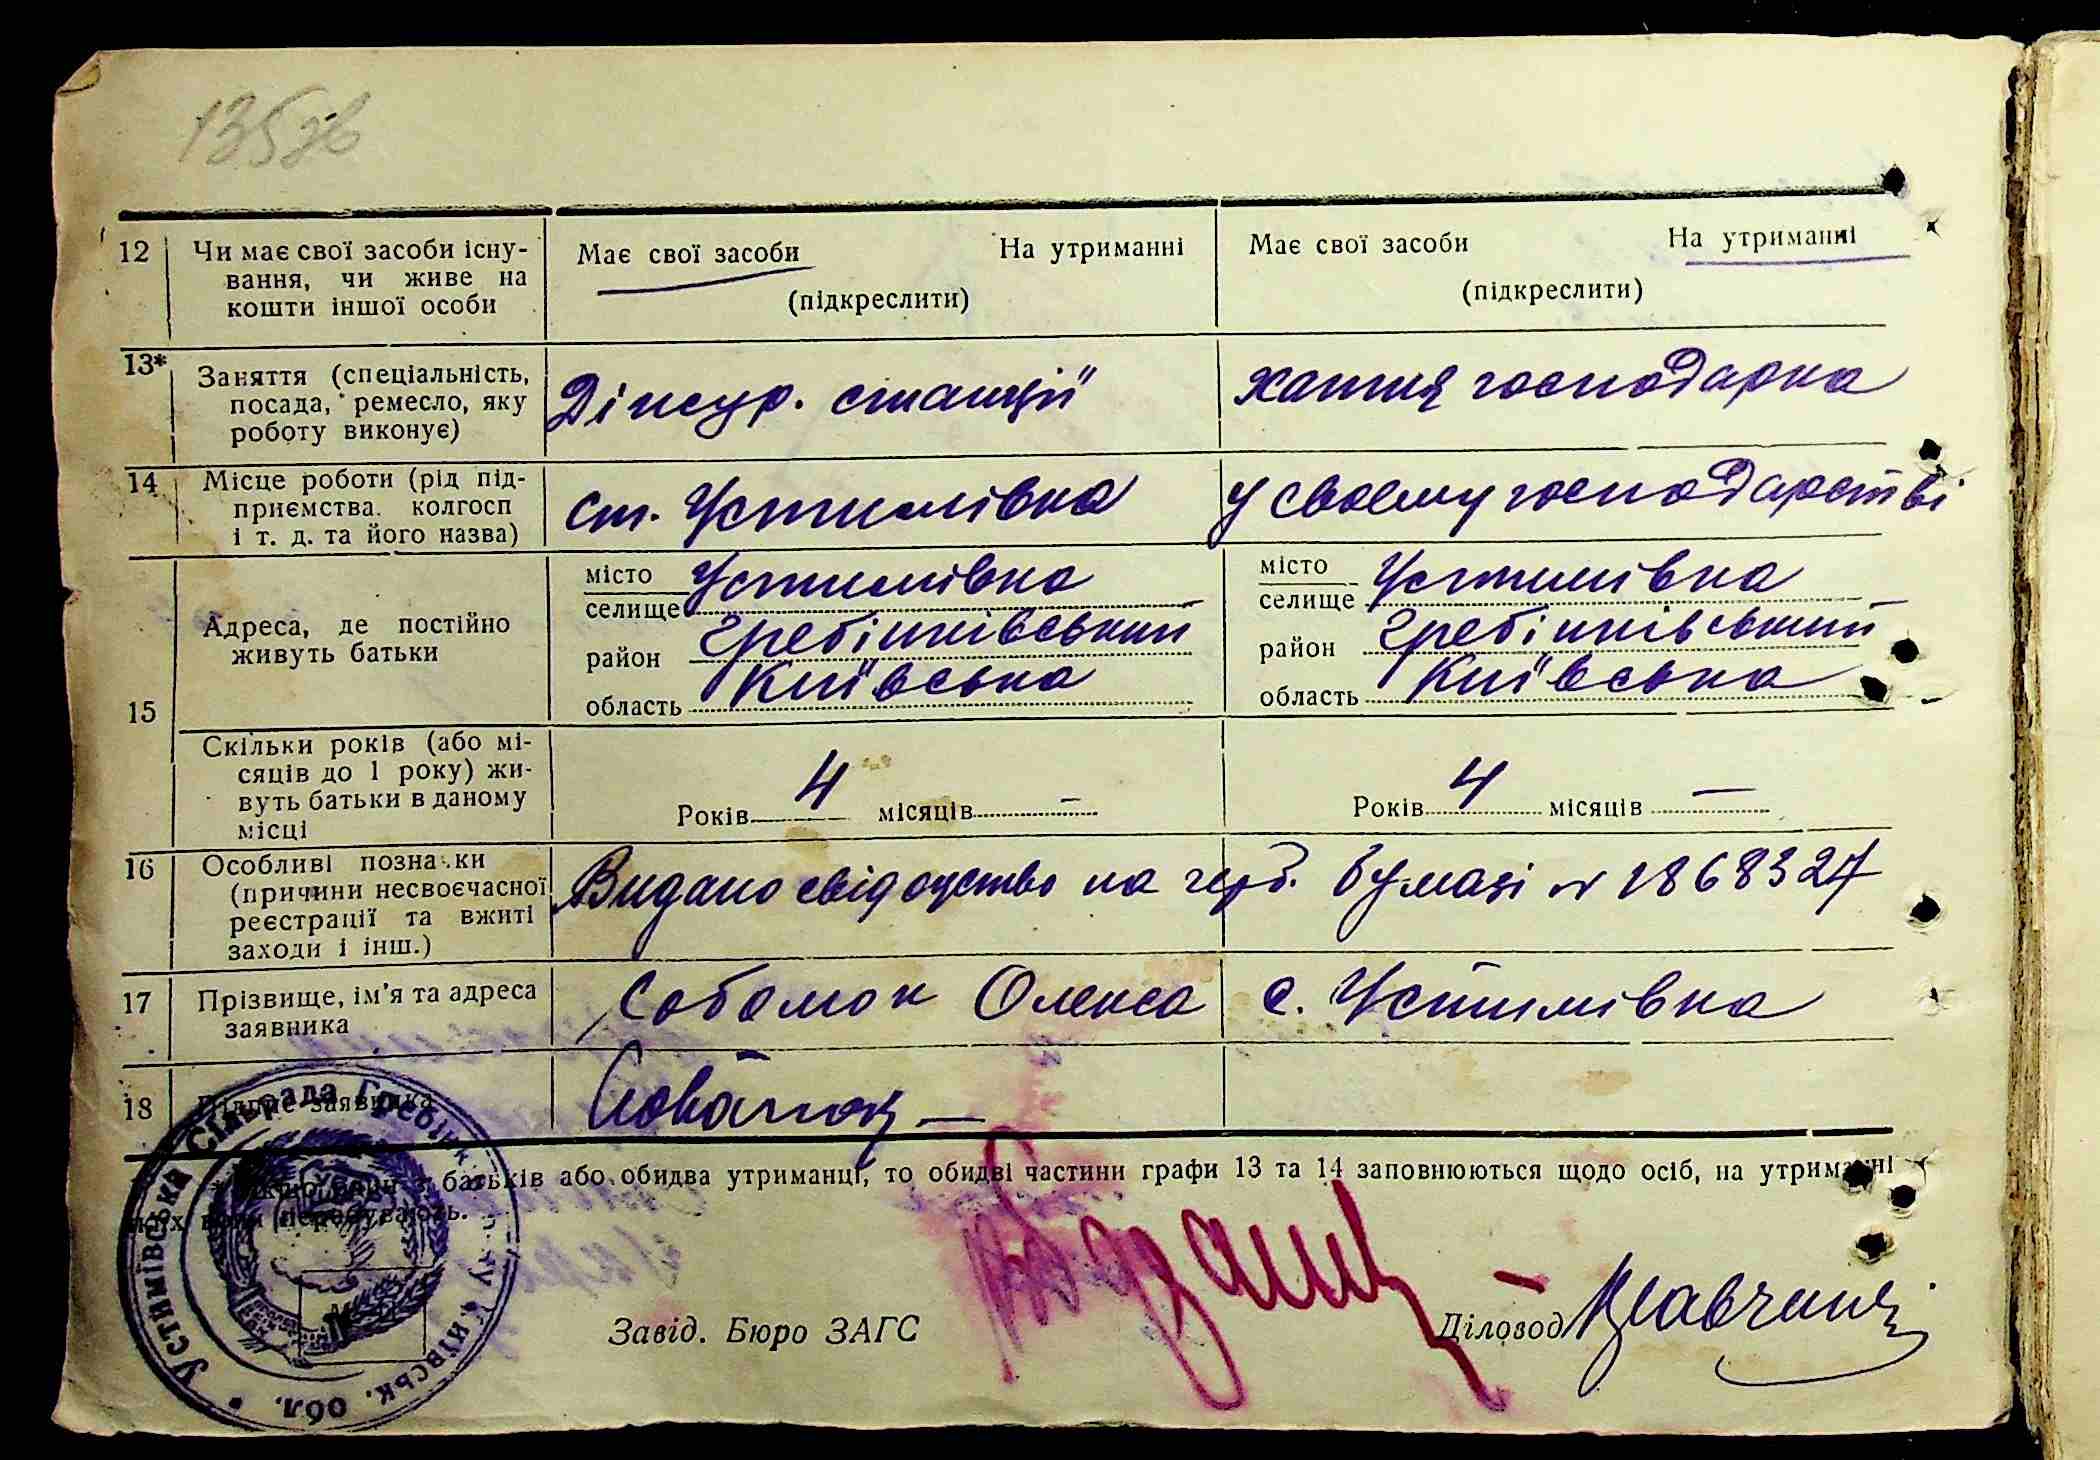 135зв
12 Чи має свої засоби існу- Має свої засоби На утриманні Має свої засоби На утриманні
вання, чи живе на (підкреслити) (підкреслити)
кошти іншої особи
13* Заняття (спеціальність, Діжур. станції хатня господарка
посада, ремесло, яку
роботу виконує)
14 Місце роботи (рід під- ст. Устимівка у своєму господарстві
приємства. колгосп
і т. д. та його назва)
15 Адреса, де постійно живуть батьки
місто Устимівка місто Устимівка
селище селище
район Гребінківський район Гребінківський
область Київська область Київська
Скільки років (або мі-
сяців до 1 року) жи-
вуть батьки в даному
місці
Років 4 місяців — Років 4 місяців —
16 Особливі познаки Видано свідоцтво на герб. бумазі № 1868327
(причини несвоєчасної
реєстрації та вжиті
заходи і інш.)
17 Прізвище, ім'я та адреса Олекса с. Устимівка
заявника
18 Підпис заявника
батьків або обидва утриманці, то обидві частини графи 13 та 14 заповнюються щодо осіб, на утриманні
яких вони перебувають.
Завід. Бюро ЗАГС Діловод
Устимівська Сільрада Гребінк. р-ну Київськ. обл.